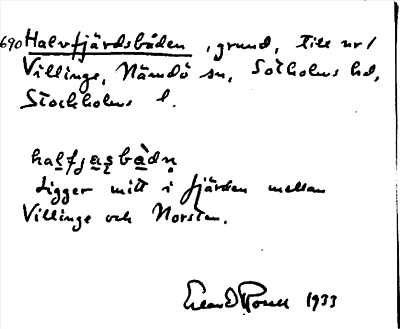 690 Halvfjärdsbåden, grund, till nr 1
Villinge, Nämdö sn, Sotholms hd,
Stockholms l.
halfjæsbådn
Ligger mitt i fjärden mellan
Villinge och Norsten.
1933